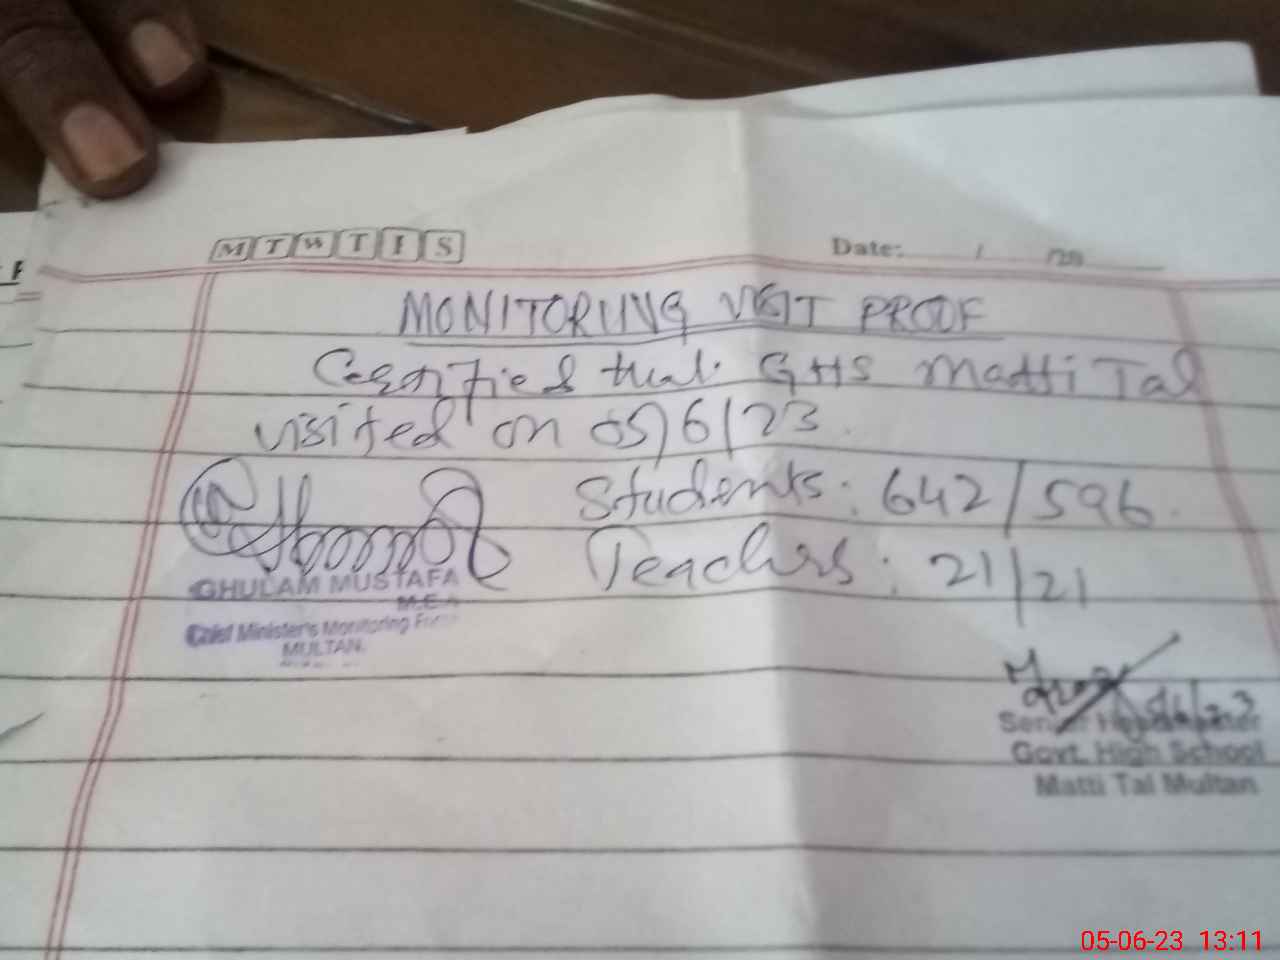 M T W T F S
Date: / /20
MONITORING VISIT PROOF
Certified that GHS Matti Tal
visited on 05/6/23.
Students: 642/596.
Teachers: 21/21
GHULAM MUSTAFA
M.E.A
Chief Minister's Monitoring Force
MULTAN.
5/6/23
Senior Headmaster
Govt. High School
Matti Tal Multan
05-06-23 13:11